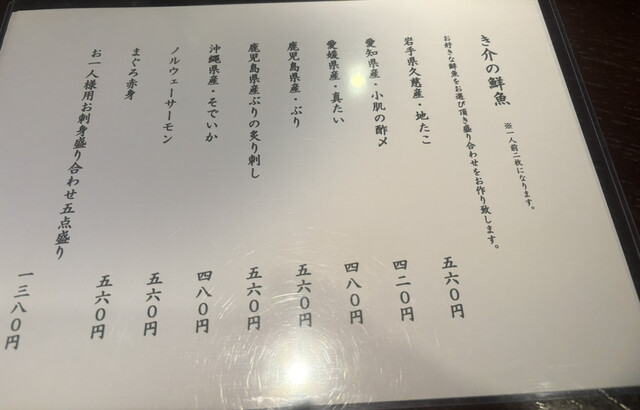 き介の鮮魚
※一人前二枚になります。
お好きな鮮魚をお選び頂き盛り合わせをお作り致します。
岩手県久慈産・地たこ 五六〇円
愛知県産・小肌の酢〆 四二〇円
愛媛県産・真たい 四八〇円
鹿児島県産・ぶり 五六〇円
鹿児島県産ぶりの炙り刺し 五六〇円
沖縄県産・そでいか 四八〇円
ノルウェーサーモン 五六〇円
まぐろ赤身 五六〇円
お一人様用お刺身盛り合わせ五点盛り 一三八〇円